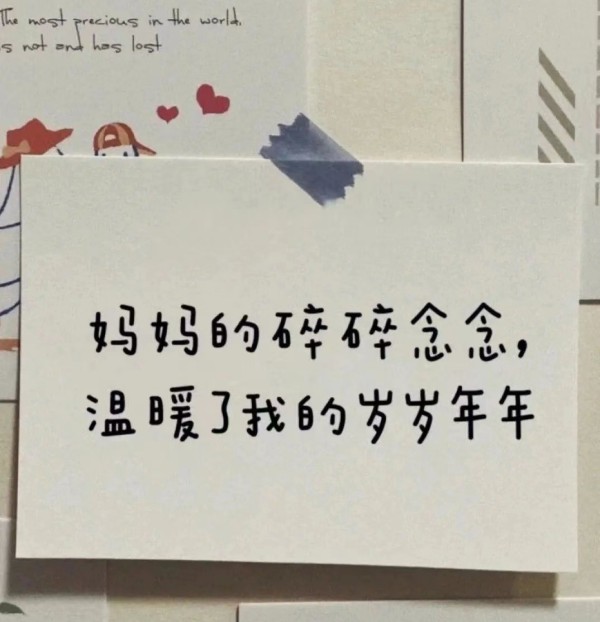 The most precious in the world,
is not and has lost
妈妈的碎碎念念，
温暖了我的岁岁年年